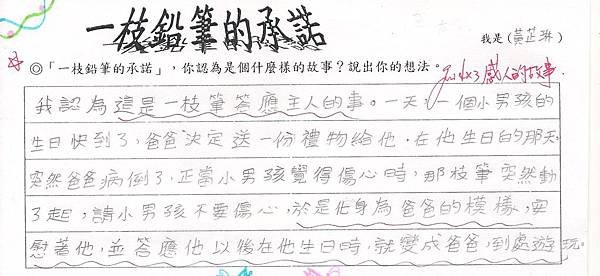 一枝鉛筆的承諾
我是(黃芷琳)
◎「一枝鉛筆的承諾」，你認為是個什麼樣的故事？說出你的想法。
感人的故事.
我認為這是一枝筆答應主人的事。一天,一個小男孩的
生日快到了,爸爸決定送一份禮物給他.在他生日的那天,
突然爸爸病倒了,正當小男孩覺得傷心時,那枝筆突然動
了起,請小男孩不要傷心,於是化身為爸爸的模樣,安
慰著他,並答應他以後在他生日時,就變成爸爸,到處遊玩.